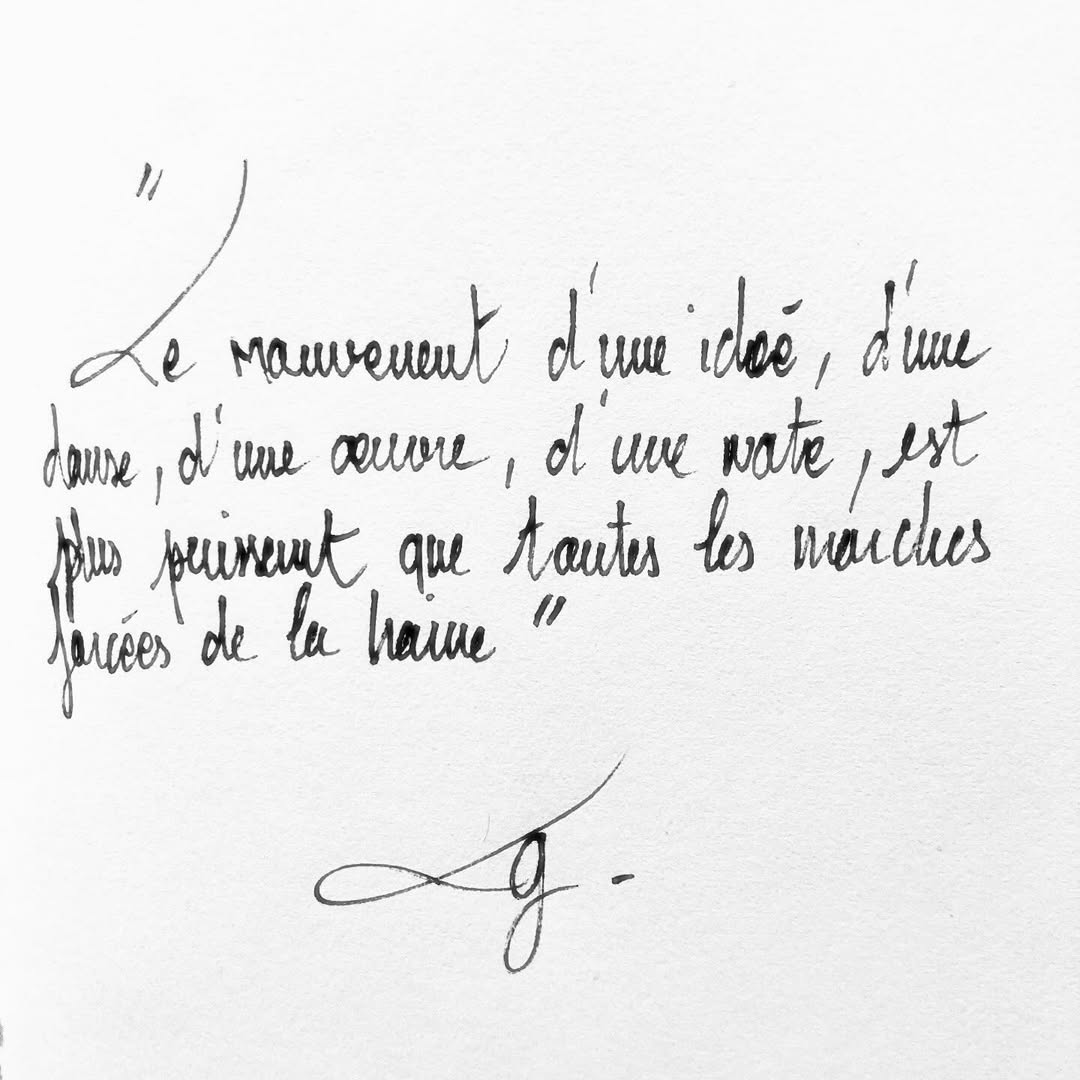 " Le mouvement d'une idée, d'une
danse, d'une œuvre, d'une note, est
plus puissant que toutes les marches
forcées de la haine "
Lg.